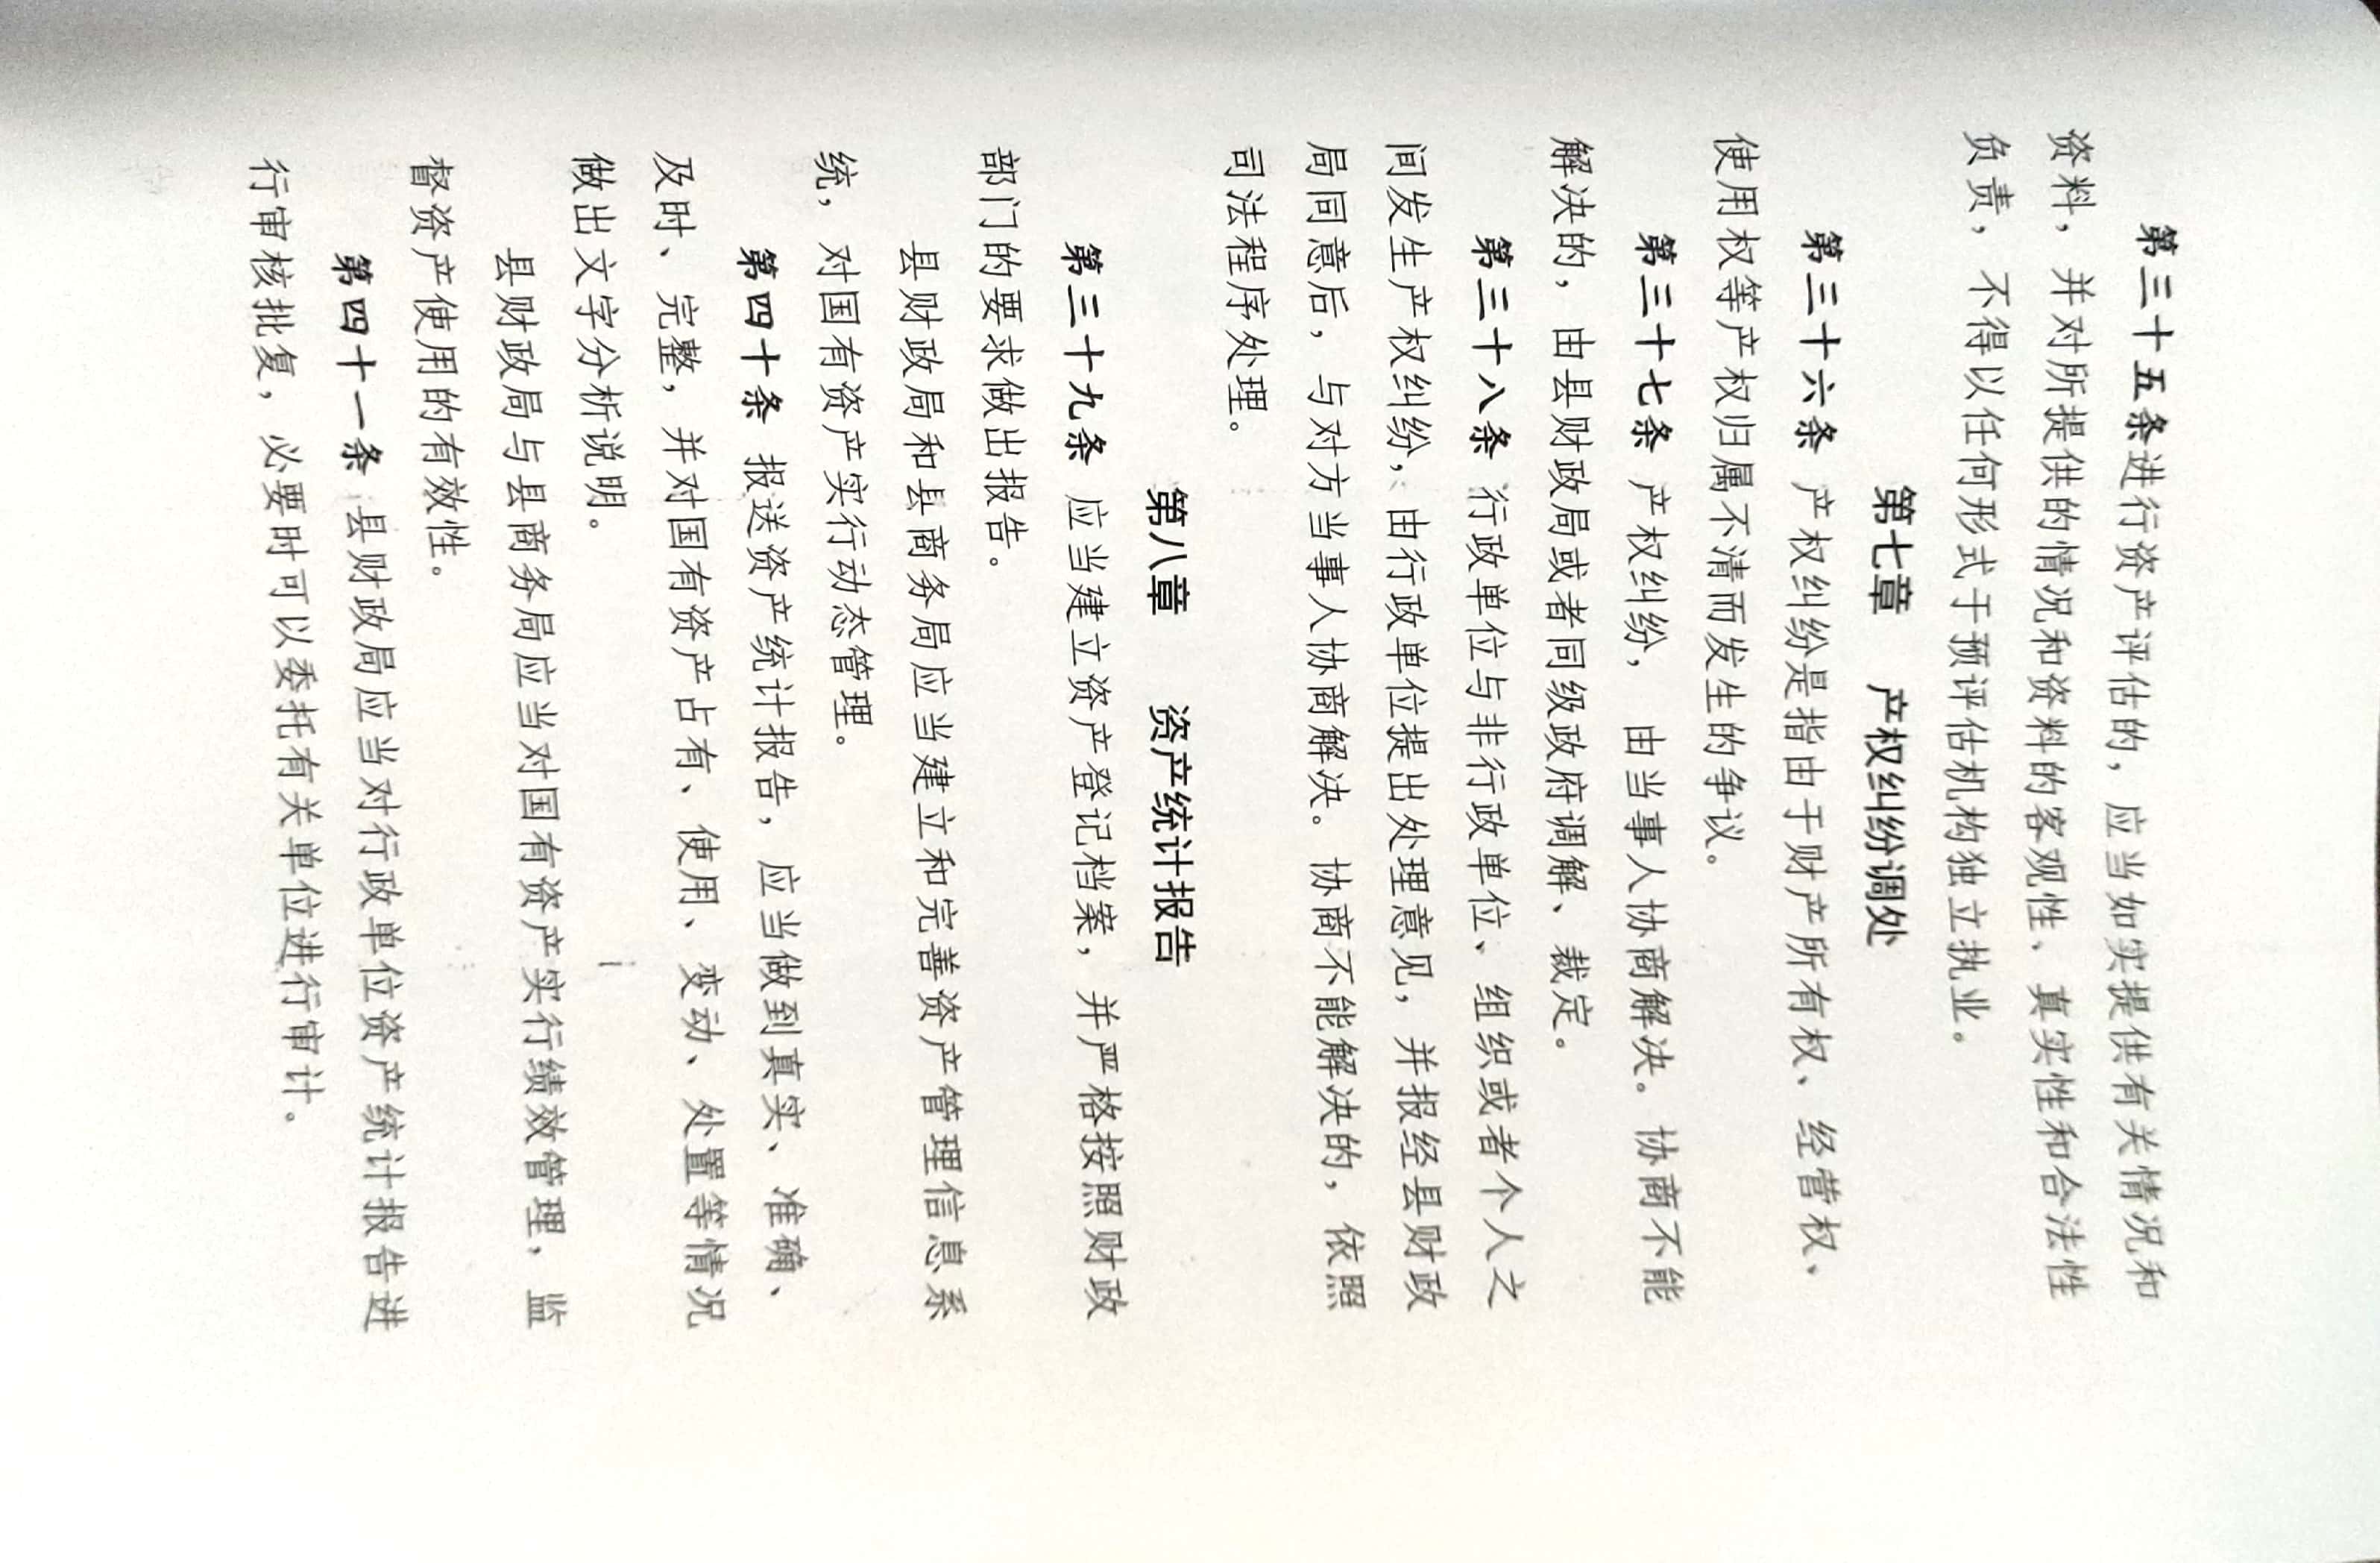 第三十五条进行资产评估的，应当如实提供有关情况和
资料，并对所提供的情况和资料的客观性、真实性和合法性
负责，不得以任何形式于预评估机构独立执业。
第七章 产权纠纷调处
第三十六条 产权纠纷是指由于财产所有权、经营权、
使用权等产权归属不清而发生的争议。
第三十七条 产权纠纷，由当事人协商解决。协商不能
解决的，由县财政局或者同级政府调解、裁定。
第三十八条 行政单位与非行政单位、组织或者个人之
间发生产权纠纷，由行政单位提出处理意见，并报经县财政
局同意后，与对方当事人协商解决。协商不能解决的，依照
司法程序处理。
第八章 资产统计报告
第三十九条 应当建立资产登记档案，并严格按照财政
部门的要求做出报告。
县财政局和县商务局应当建立和完善资产管理信息系
统，对国有资产实行动态管理。
第四十条 报送资产统计报告，应当做到真实、准确、
及时、完整，并对国有资产占有、使用、变动、处置等情况
做出文字分析说明。
县财政局与县商务局应当对国有资产实行绩效管理，监
督资产使用的有效性。
第四十一条 县财政局应当对行政单位资产统计报告进
行审核批复，必要时可以委托有关单位进行审计。